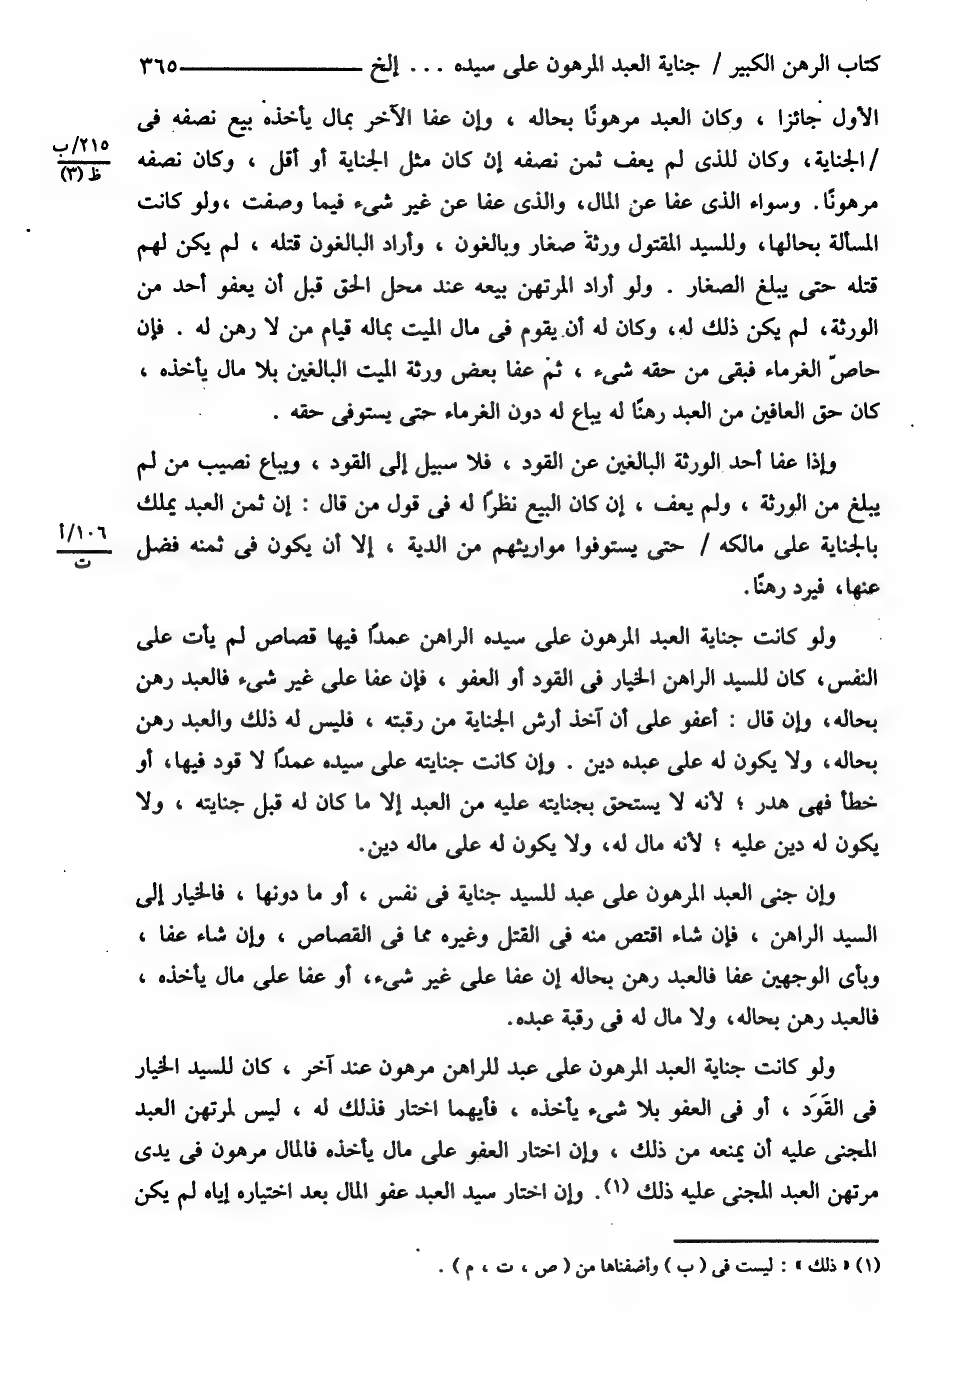 كتاب الرهن الكبير / جناية العبد المرهون على سيده ... إلخ ٣٦٥
الأول جائزا ، وكان العبد مرهونًا بحاله ، وإن عفا الآخر بمال يأخذه بيع نصفه فى
٢١٥/ب
ظ (٣)
/الجناية، وكان للذى لم يعف ثمن نصفه إن كان مثل الجناية أو أقل ، وكان نصفه
مرهونًا. وسواء الذى عفا عن المال، والذى عفا عن غير شىء فيما وصفت ،ولو كانت
المسألة بحالها، وللسيد المقتول ورثة صغار وبالغون ، وأراد البالغون قتله ، لم يكن لهم
قتله حتى يبلغ الصغار . ولو أراد المرتهن بيعه عند محل الحق قبل أن يعفو أحد من
الورثة، لم يكن ذلك له، وكان له أن يقوم فى مال الميت بماله قيام من لا رهن له . فإن
حاصّ الغرماء فبقى من حقه شىء ، ثم عفا بعض ورثة الميت البالغين بلا مال يأخذه ،
كان حق العافين من العبد رهنًا له يباع له دون الغرماء حتى يستوفى حقه .
وإذا عفا أحد الورثة البالغين عن القود ، فلا سبيل إلى القود ، ويباع نصيب من لم
يبلغ من الورثة ، ولم يعف ، إن كان البيع نظرًا له فى قول من قال : إن ثمن العبد يملك
١٠٦/أ
ت
بالجناية على مالكه / حتى يستوفوا مواريثهم من الدية ، إلا أن يكون فى ثمنه فضل
عنها، فيرد رهنًا.
ولو كانت جناية العبد المرهون على سيده الراهن عمدًا فيها قصاص لم يأت على
النفس، كان للسيد الراهن الخيار فى القود أو العفو ، فإن عفا على غير شىء فالعبد رهن
بحاله، وإن قال : أعفو على أن آخذ أرش الجناية من رقبته ، فليس له ذلك والعبد رهن
بحاله، ولا يكون له على عبده دين . وإن كانت جنايته على سيده عمدًا لا قود فيها، أو
خطأ فهى هدر ؛ لأنه لا يستحق بجنايته عليه من العبد إلا ما كان له قبل جنايته ، ولا
يكون له دين عليه ؛ لأنه مال له، ولا يكون له على ماله دين.
وإن جنى العبد المرهون على عبد للسيد جناية فى نفس ، أو ما دونها ، فالخيار إلى
السيد الراهن ، فإن شاء اقتص منه فى القتل وغيره مما فى القصاص ، وإن شاء عفا ،
وبأى الوجهين عفا فالعبد رهن بحاله إن عفا على غير شىء، أو عفا على مال يأخذه ،
فالعبد رهن بحاله، ولا مال له فى رقبة عبده.
ولو كانت جناية العبد المرهون على عبد للراهن مرهون عند آخر ، كان للسيد الخيار
فى القَوَد ، أو فى العفو بلا شىء يأخذه ، فأيهما اختار فذلك له ، ليس لمرتهن العبد
المجنى عليه أن يمنعه من ذلك ، وإن اختار العفو على مال يأخذه فالمال مرهون فى يدى
مرتهن العبد المجنى عليه ذلك (١). وإن اختار سيد العبد عفو المال بعد اختياره إياه لم يكن
(١) « ذلك » : ليست فى ( ب ) وأضفناها من ( ص ، ت ، م ) .